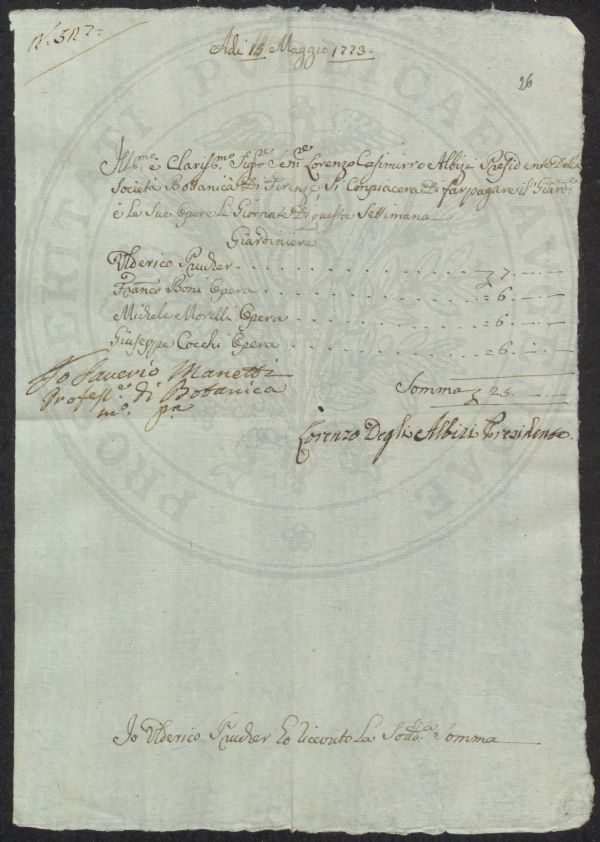 N.° 527 =
Adi 15 Maggio 1773 =
26
Ill.mo e Clariss.mo Sig.re Sen.re Lorenzo Casimirro Albizi Presidente Della
Società Bottanica Di Firenze Si Conpiacera Di far pagare il Giard.
è le Sue Opere le Giornate Di questa Settimana
Giardiniere
Ulderico . . . . 7 . —
Franco Boni Opera . . . . = 6 . —
Michele Morelli Opera . . . . = 6 . —
Giuseppe Cocchi Opera . . . . = 6 . —
Somma 25 . —
Io Saverio Manetti
Profess.re di Botanica
m.o p.a
Lorenzo Degli Albizi Presidente.
Io Ulderico Ho Riceuto La Sod.a Somma